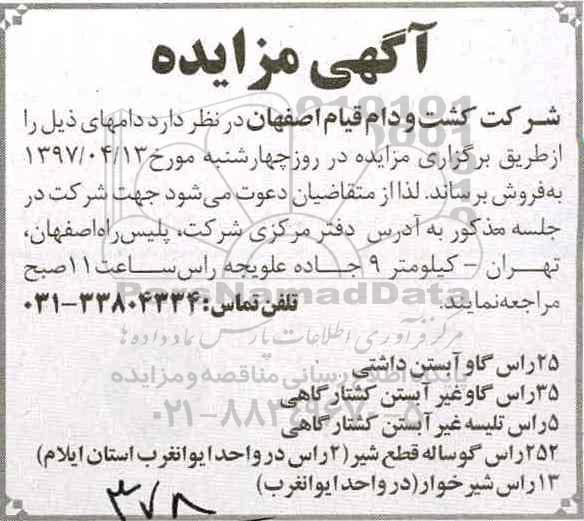 آگهی مزایده
شرکت کشت و دام قیام اصفهان در نظر دارد دامهای ذیل را
ازطریق برگزاری مزایده در روزچهارشنبه مورخ ۱۳۹۷/۰۴/۱۳
به‌فروش برساند. لذا از متقاضیان دعوت می‌شود جهت شرکت در
جلسه مذکور به آدرس دفتر مرکزی شرکت، پلیس‌راه‌اصفهان،
تهران – کیلومتر ۹ جاده علویجه راس‌ساعت۱۱صبح
مراجعه‌نمایند. تلفن تماس: ۳۳۸۰۴۳۳۴-۰۳۱
ParsNamadData
مرکز فرآوری اطلاعات پارس نماد داده ها
۲۵راس گاو آبستن داشتی
پایگاه اطلاع رسانی مناقصه و مزایده
۳۵راس گاوغیر آبستن کشتارگاهی
۰۲۱-۸۸۳۴۹۶۷۰-۵
۵راس تلیسه غیر آبستن کشتارگاهی
۲۵۲راس گوساله قطع شیر (۲راس در واحد ایوانغرب استان ایلام)
۱۳راس شیرخوار(در واحد ایوانغرب)
۳۷۸